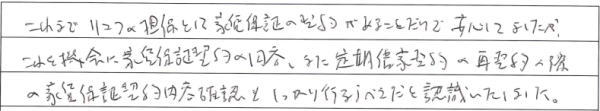 これまでリスクの担保として家賃保証の契約があることだけで安心していましたが、
これを機会に家賃保証契約の内容、また定期借家契約の再契約の際
の家賃保証契約内容確認をしっかり行うべきだと認識いたしました。